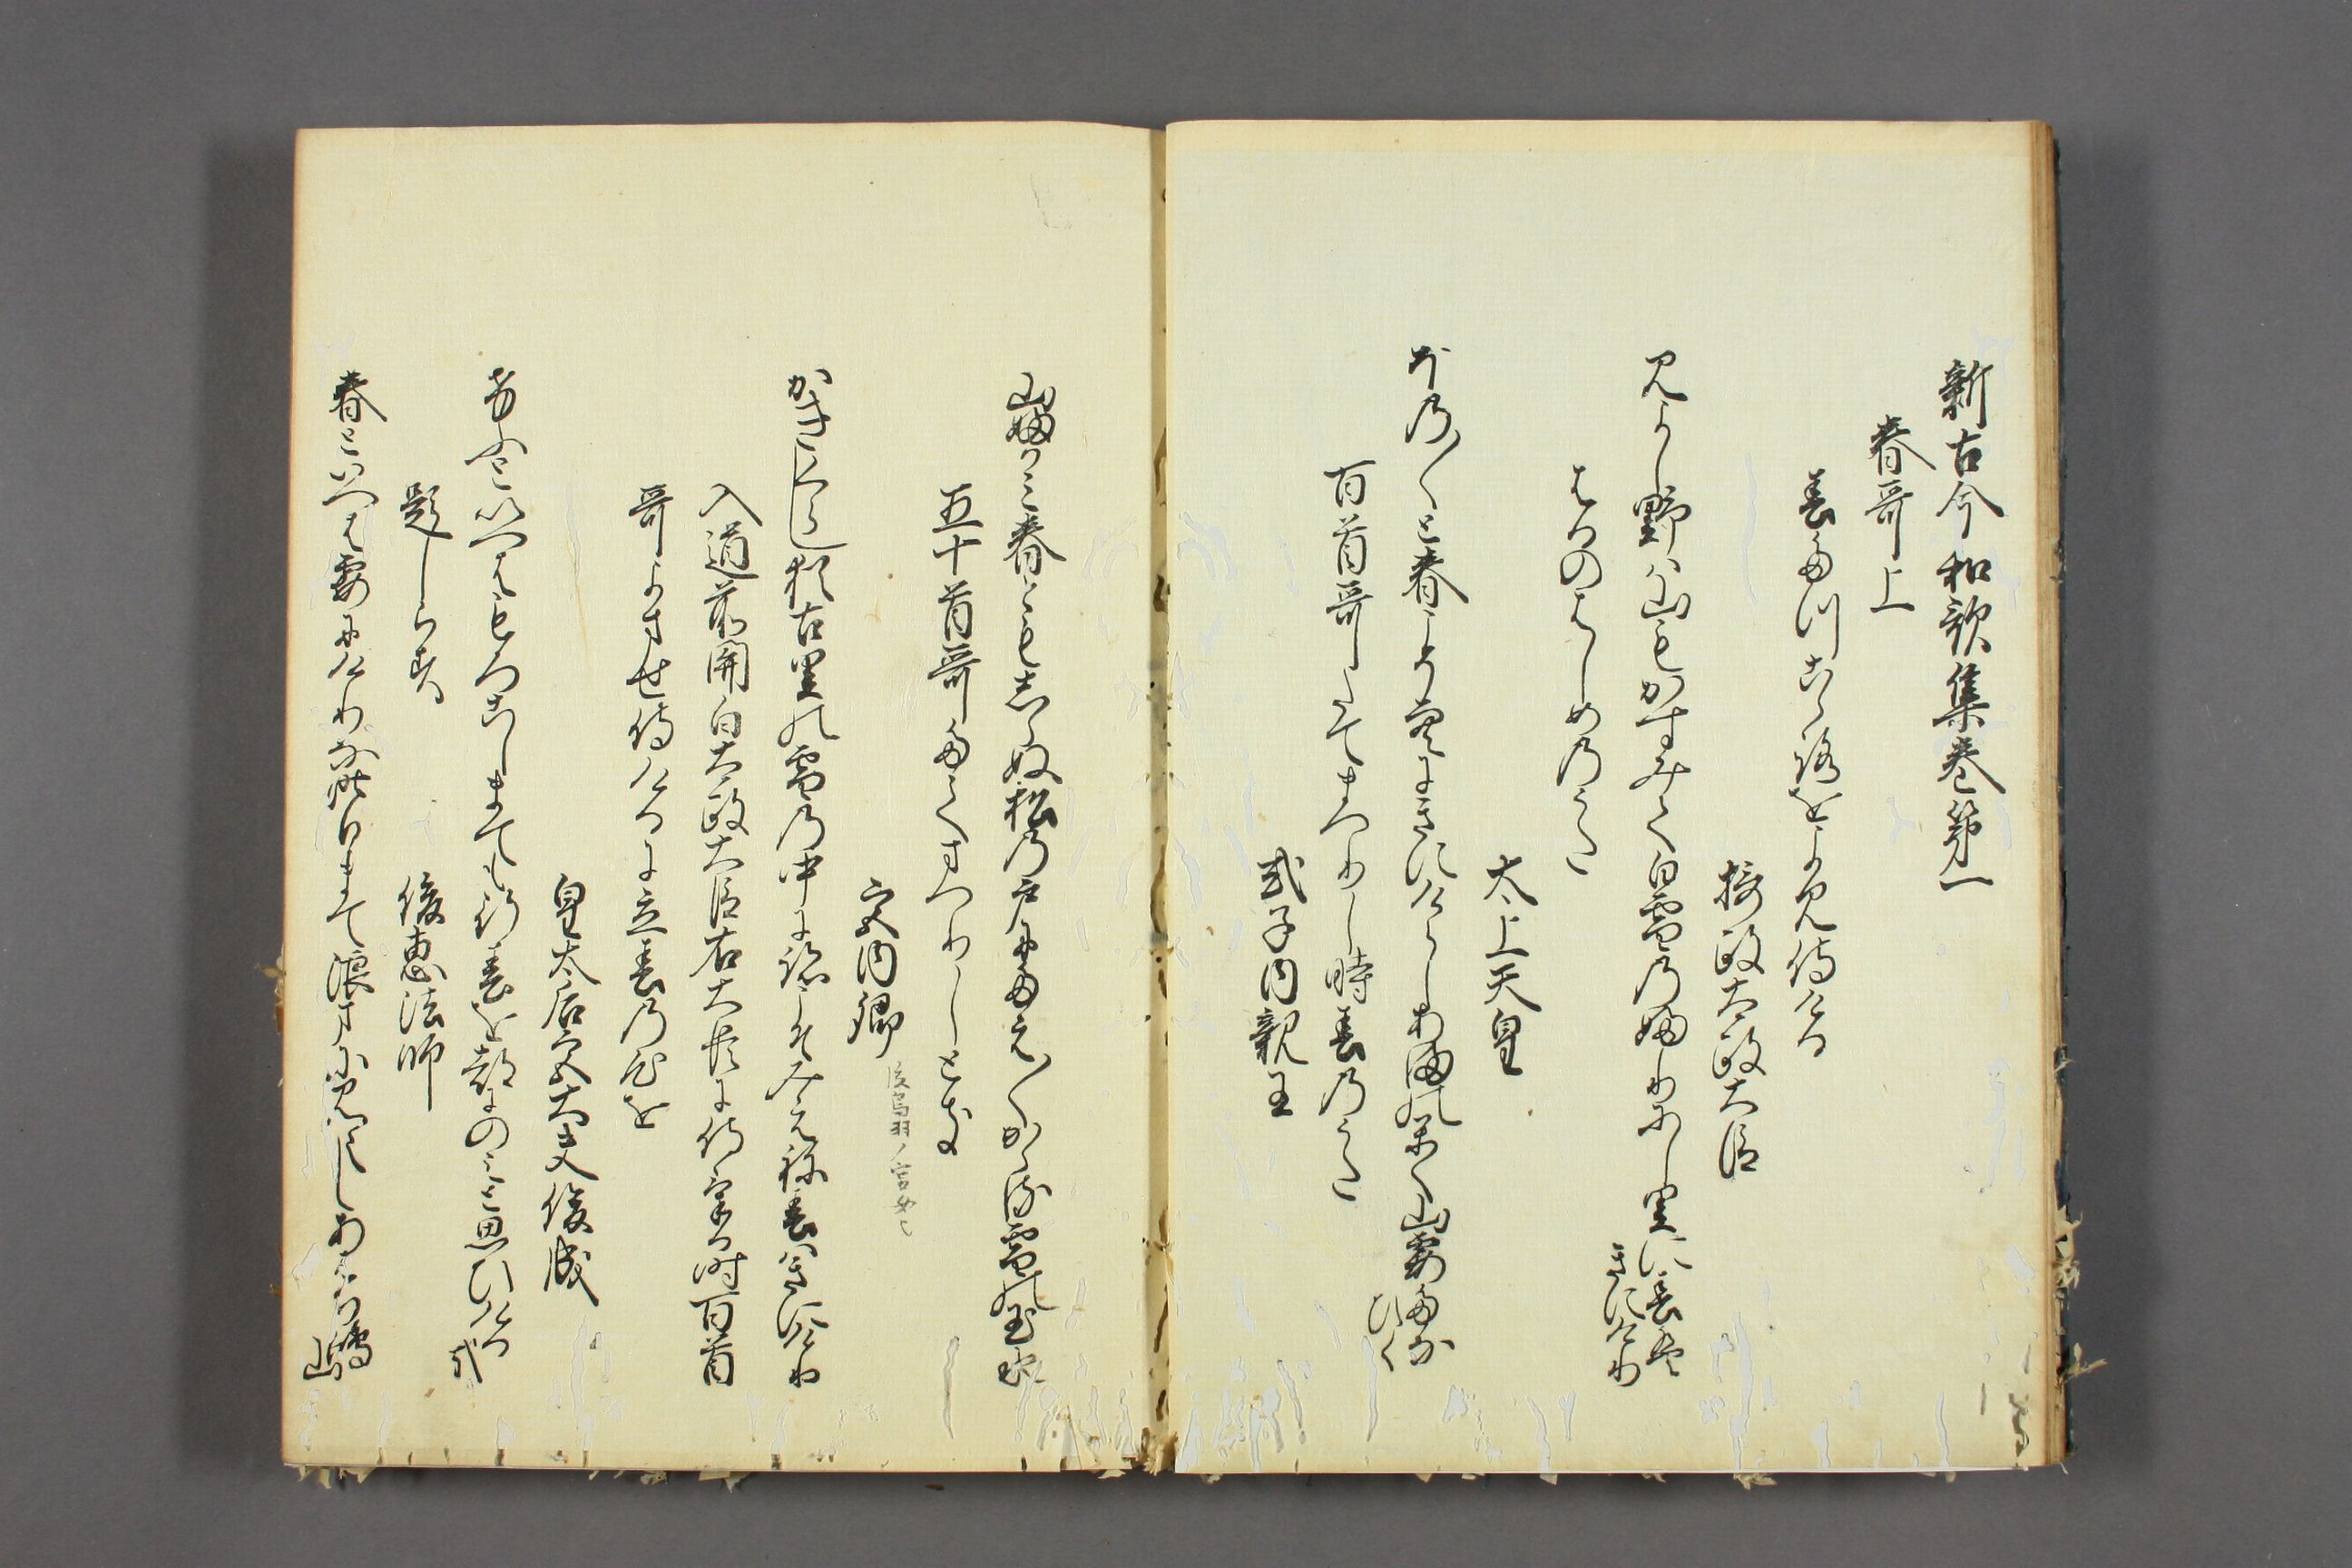 新古今和歌集巻第一
春哥上
春たつこゝろをよみ侍ける
摂政太政大臣
みよし野は山もかすみて白雪のふりにし里に春は
きにけり
はるのはしめのうた
太上天皇
ほの〱と春こそ空にきにけらしあまのかく山霞たな
ひく
百首哥たてまつりし時春のうた
式子内親王
山ふかみ春ともしらぬ松の戸にたえ〱かゝる雪の玉水
五十首哥たてまつりしとき
宮内卿
後鳥羽ノ宮女也
かきくらし猶古里の雪の中に跡こそみえね春はきにけり
入道前関白太政大臣右大臣に侍ける時百首
哥よませ侍けるに立春の心を
皇太后宮大夫俊成
けふといへはもろこしまても行春を都にのみと思ひける
哉
題しらす
俊恵法師
春といへは霞にけりなきのふまて浪まにみえしあはち嶋
山